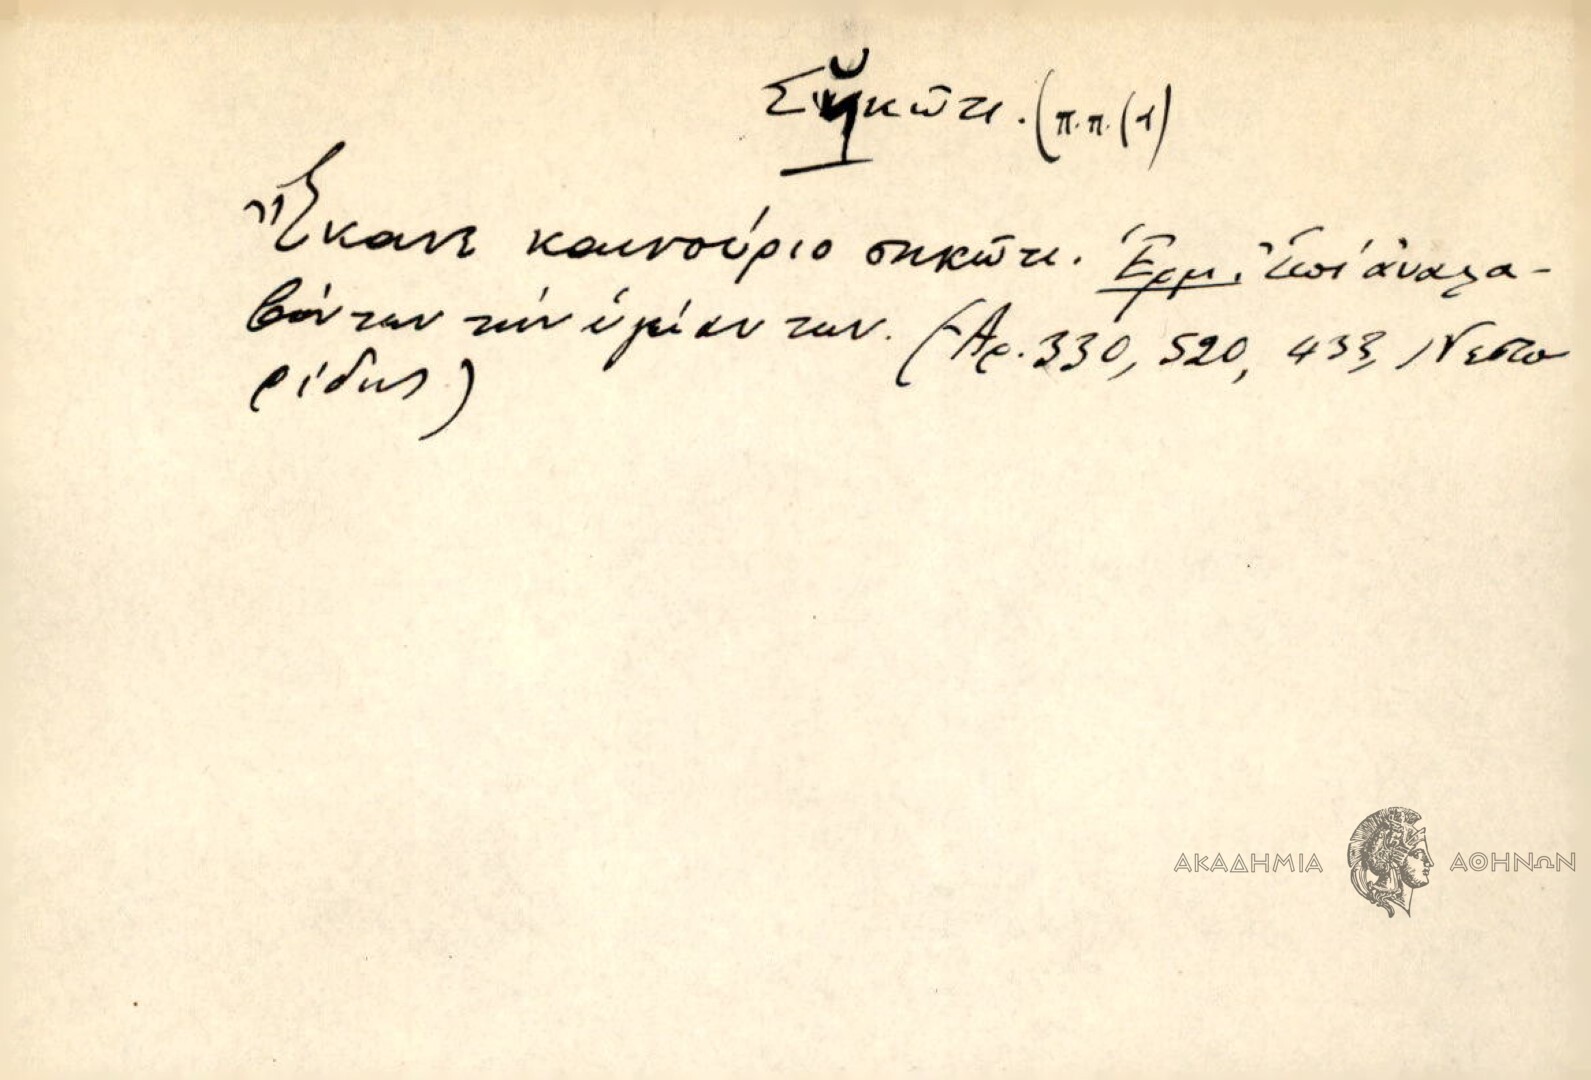 Συκῶτι. (π.π. (1)
Ἔκανε καινούριο σηκῶτι. Ἑρμ. Ἐπί ἀναλα-
βόντων τήν ὑγείαν των. (Ἀρ. 330, 520, 433, Νεστο
ρίδης)
ΑΚΑΔΗΜΙΑ ΑΘΗΝΩΝ